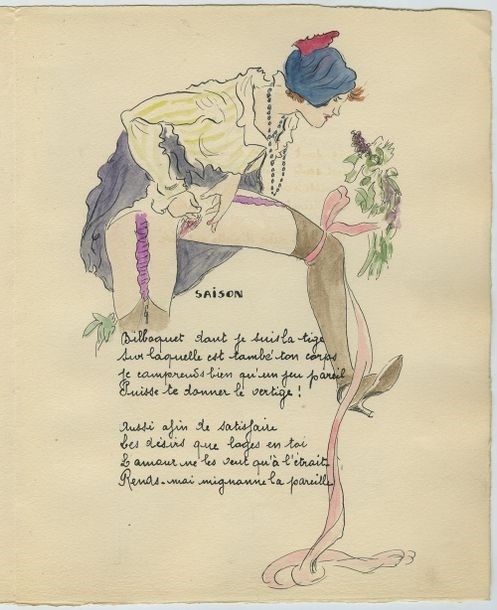 SAISON
Bilboquet dont je suis la tige
Sur laquelle est tombé ton corps
Je comprends bien qu'un jeu pareil
Puisse te donner le vertige !
Aussi afin de satisfaire
Les désirs que loges en toi
L'amour ne les veut qu'à l'étroit
Rends-moi mignonne la pareille